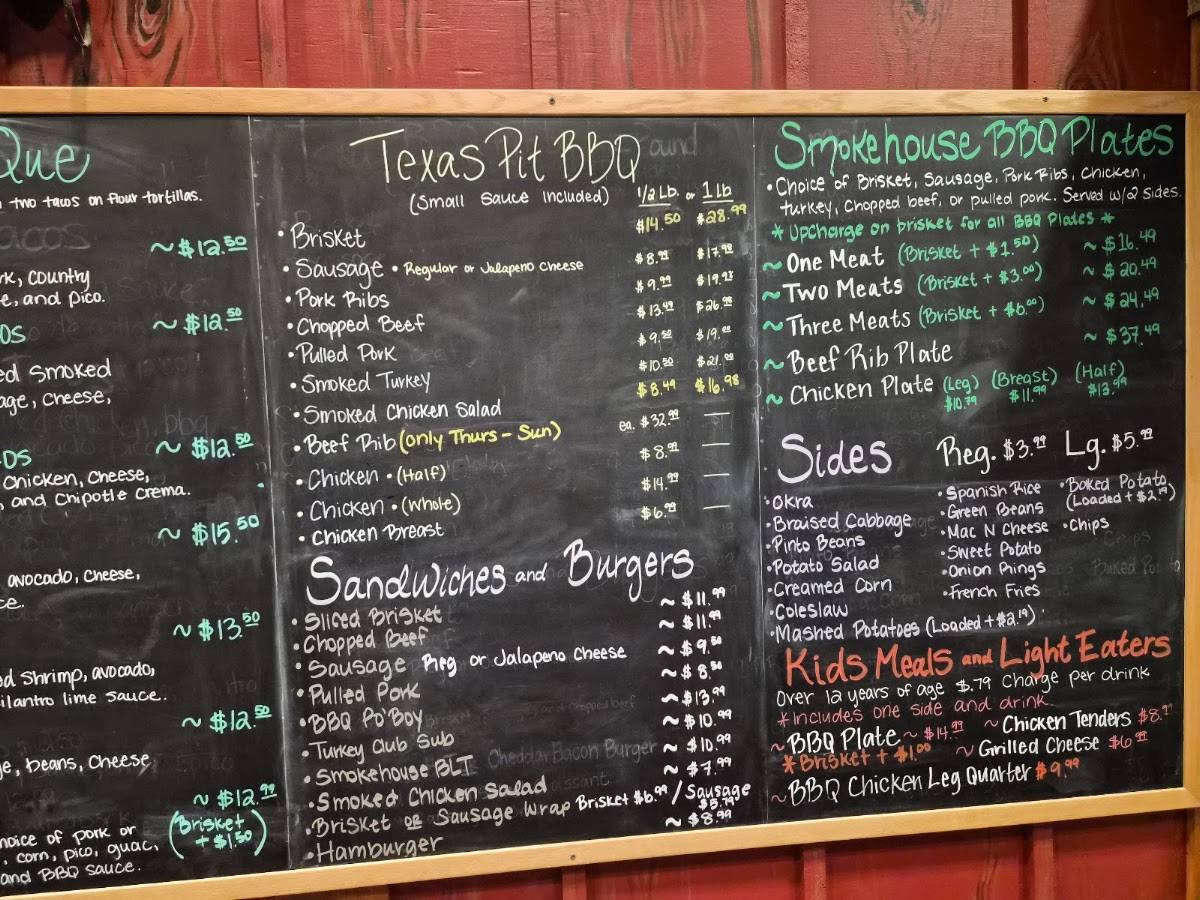 Que
two tacos on flour tortillas.
~ $12.50
rk, country
e, and pico.
~ $12.50
os
ed smoked
age, cheese,
~ $12.50
os
chicken, cheese,
, and chipotle crema.
~ $15.50
avocado, cheese,
ce.
~ $13.50
ed shrimp, avocado,
ilantro lime sauce.
~ $12.50
e, beans, cheese
~ $12.99
hoice of pork or
, corn, pico, guac,
and BBQ sauce.
(Brisket
+ $1.50)
Texas Pit BBQ
(Small Sauce Included)
1/2 Lb. or 1 lb
• Brisket $14.50 $28.99
• Sausage • Regular or Jalapeno Cheese $8.99 $17.98
• Pork Ribs $9.99 $19.98
• Chopped Beef $13.49 $26.98
• Pulled Pork $9.50 $19.00
• Smoked Turkey $10.50 $21.00
• Smoked Chicken Salad $8.49 $16.98
• Beef Rib (only Thurs - Sun) ea. $32.99 —
• Chicken • (Half) $8.99 —
• Chicken • (Whole) $14.99 —
• Chicken Breast $6.99 —
Sandwiches and Burgers
• Sliced Brisket ~ $11.99
• Chopped Beef ~ $11.99
• Sausage Reg or Jalapeno Cheese ~ $9.50
• Pulled Pork ~ $8.50
• BBQ Po'Boy ~ $13.99
• Turkey Club Sub ~ $10.99
• Smokehouse BLT ~ $10.99
• Smoked Chicken Salad ~ $7.99
• Brisket or Sausage Wrap Brisket $6.99 / Sausage $5.79
• Hamburger ~ $8.99
Cheddar Bacon Burger
Smokehouse BBQ Plates
• Choice of Brisket, Sausage, Pork Ribs, Chicken,
Turkey, Chopped beef, or pulled pork. Served w/2 sides.
* Upcharge on brisket for all BBQ Plates *
~ One Meat (Brisket + $1.50) ~ $16.49
~ Two Meats (Brisket + $3.00) ~ $20.49
~ Three Meats (Brisket + $6.00) ~ $24.49
~ Beef Rib Plate ~ $37.49
~ Chicken Plate (Leg) (Breast) (Half)
$10.79 $11.99 $13.99
Sides Reg. $3.99 Lg. $5.99
• Okra
• Braised Cabbage
• Pinto Beans
• Potato Salad
• Creamed Corn
• Coleslaw
• Mashed Potatoes (Loaded + $2.19)
• Spanish Rice
• Green Beans
• Mac N Cheese
• Sweet Potato
• Onion Rings
• French Fries
• Baked Potato
(Loaded + $2.19)
• Chips
Kids Meals and Light Eaters
Over 12 years of age $.79 Charge per drink
*Includes one side and drink
~ BBQ Plate ~ $14.99
* Brisket + $1.00
~ Chicken Tenders
~ Grilled Cheese $6.99
~ BBQ Chicken Leg Quarter $9.99